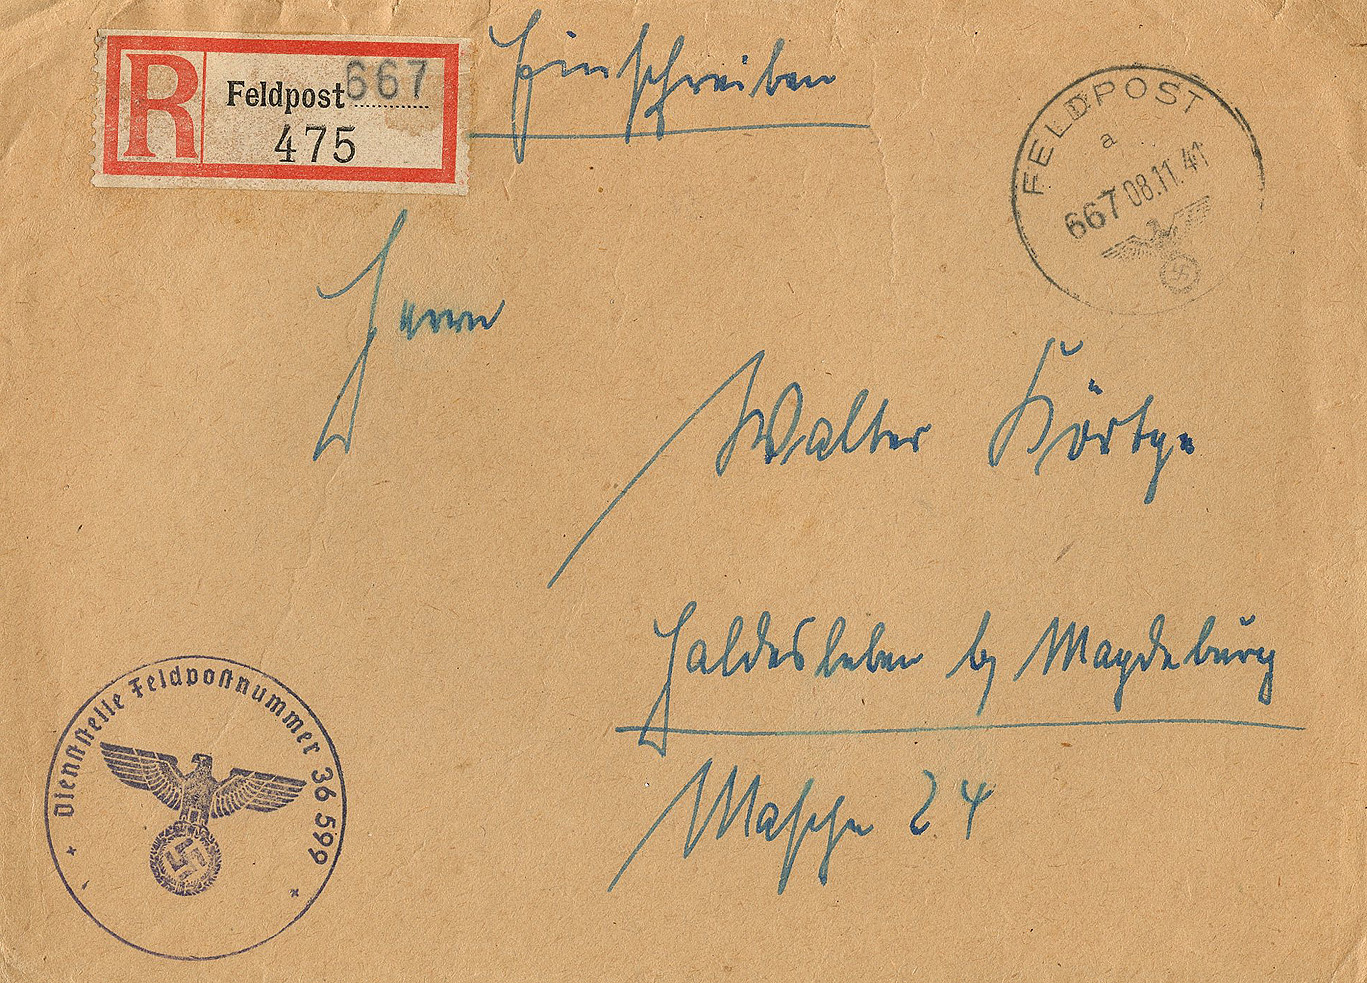 R Feldpost 667
475
Einschreiben
FELDPOST
a
667 08.11.41
Herrn
Walter Körtge
Haldesleben b/ Magdeburg
Masche 24
Dienststelle Feldpostnummer 36 599